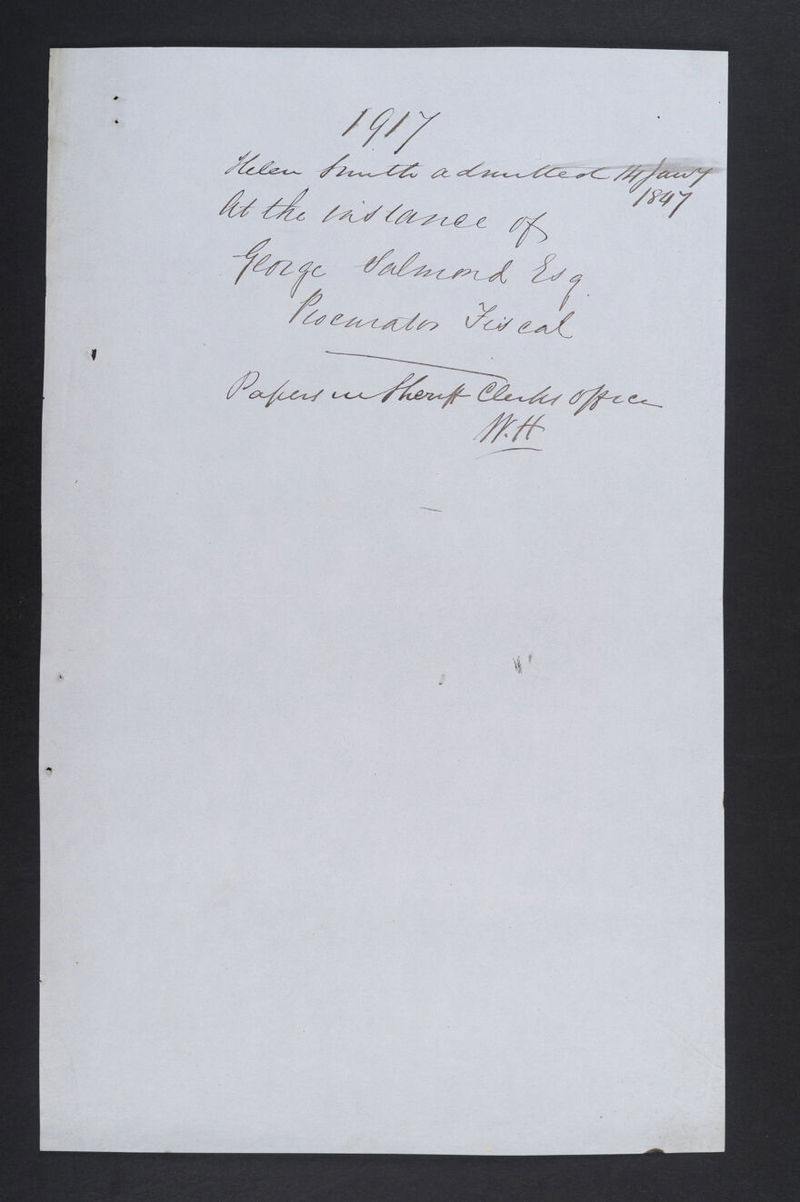 1917
Helen Smith admitted 14 Jany
1847
At the instance of
George Salmond Esq
Procurator Fiscal
Papers in Sheriff Clerks Office
W.H